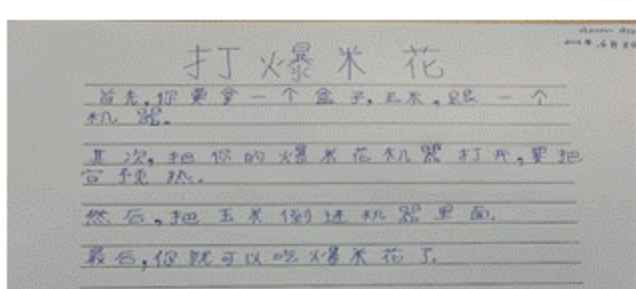 打爆米花
首先,你要拿一个盒子,玉米,跟一个
机器。
其次,把你的爆米花机器打开,要把
它预热。
然后,把玉米倒进机器里面。
最后,你就可以吃爆米花了。